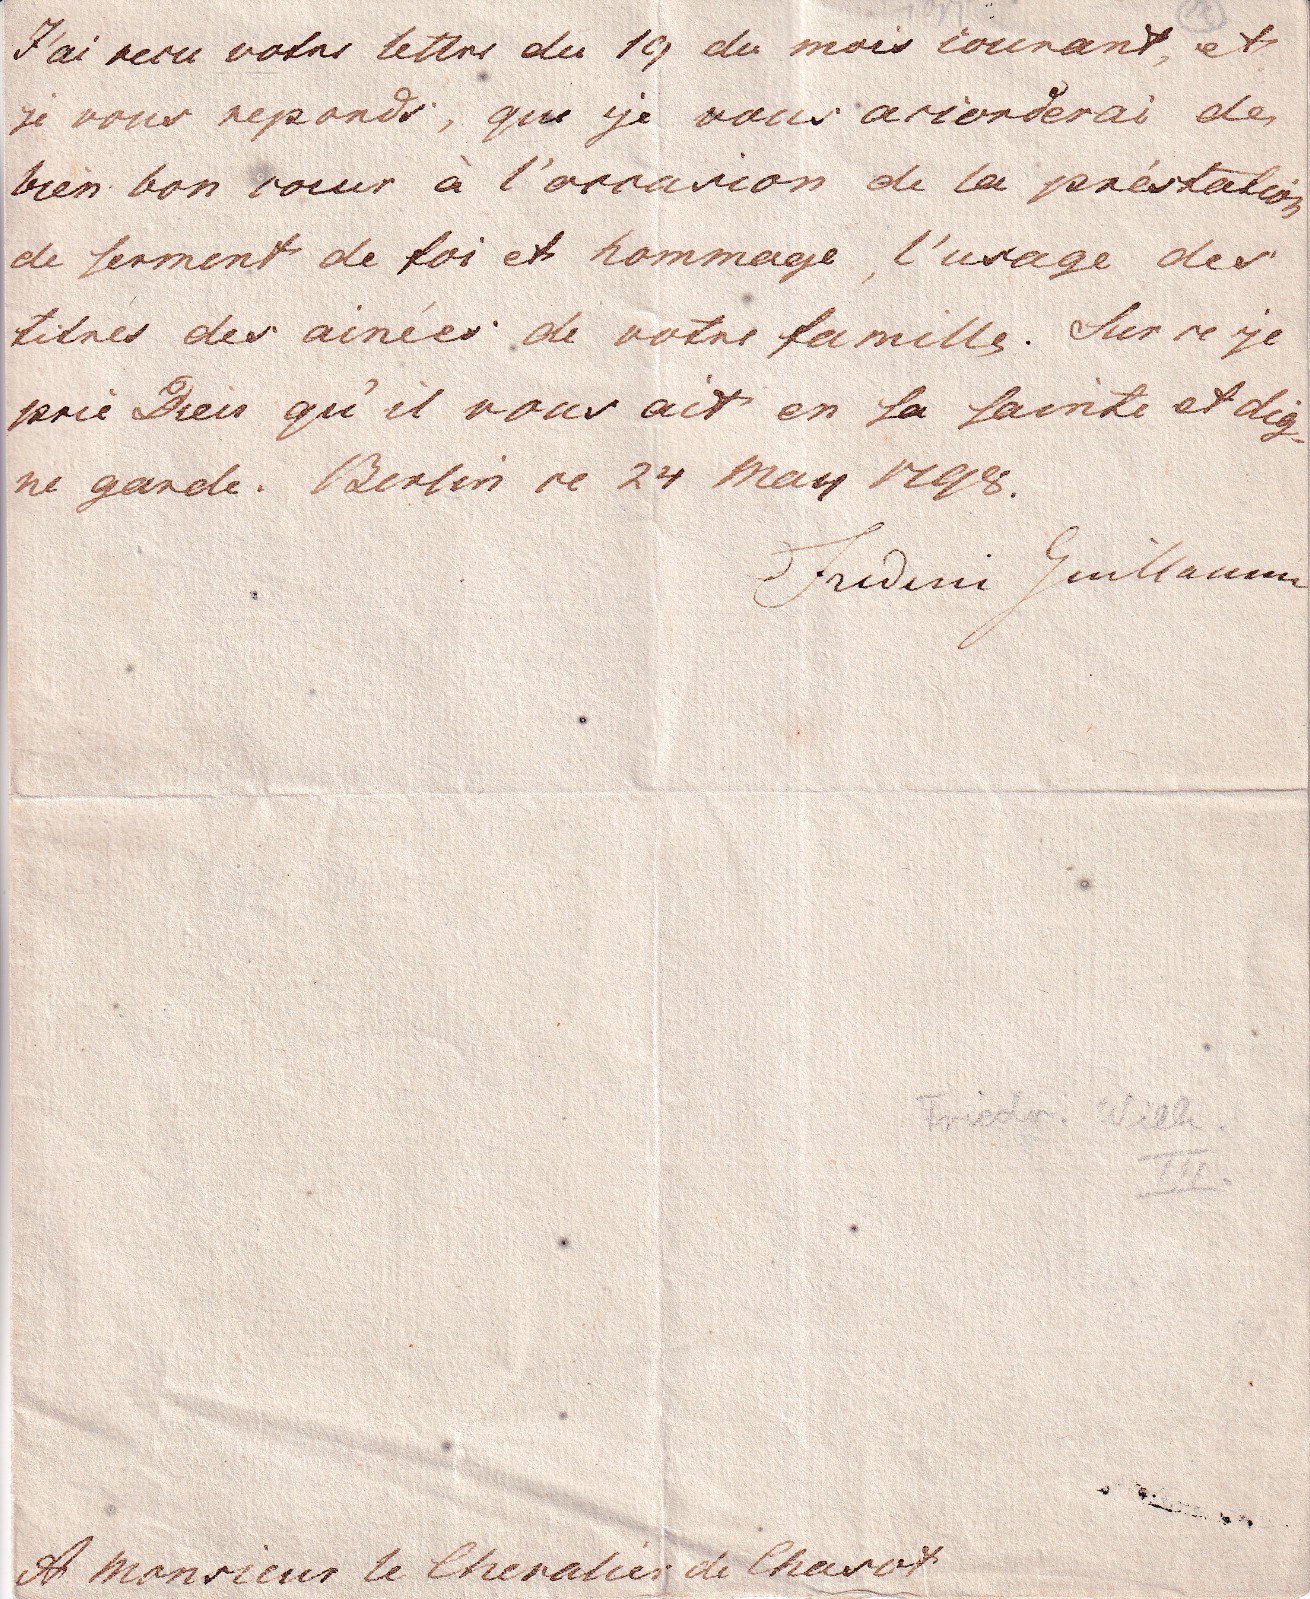 J'ai recu votre lettre du 19 du mois courant, et
je vous reponds, que je vous accorderai de
bien bon coeur à l'occasion de la préstation
de serment de foi et hommage, l'usage des
titres des ainées de votre famille. Sur ce je
prie Dieu qu'il vous ait en sa sainte et dig-
ne garde. Berlin ce 24 May 1798.
Frederic Guillaume
Friedr. Wilh.
III.
A Monsieur le Chevalier de Chasot